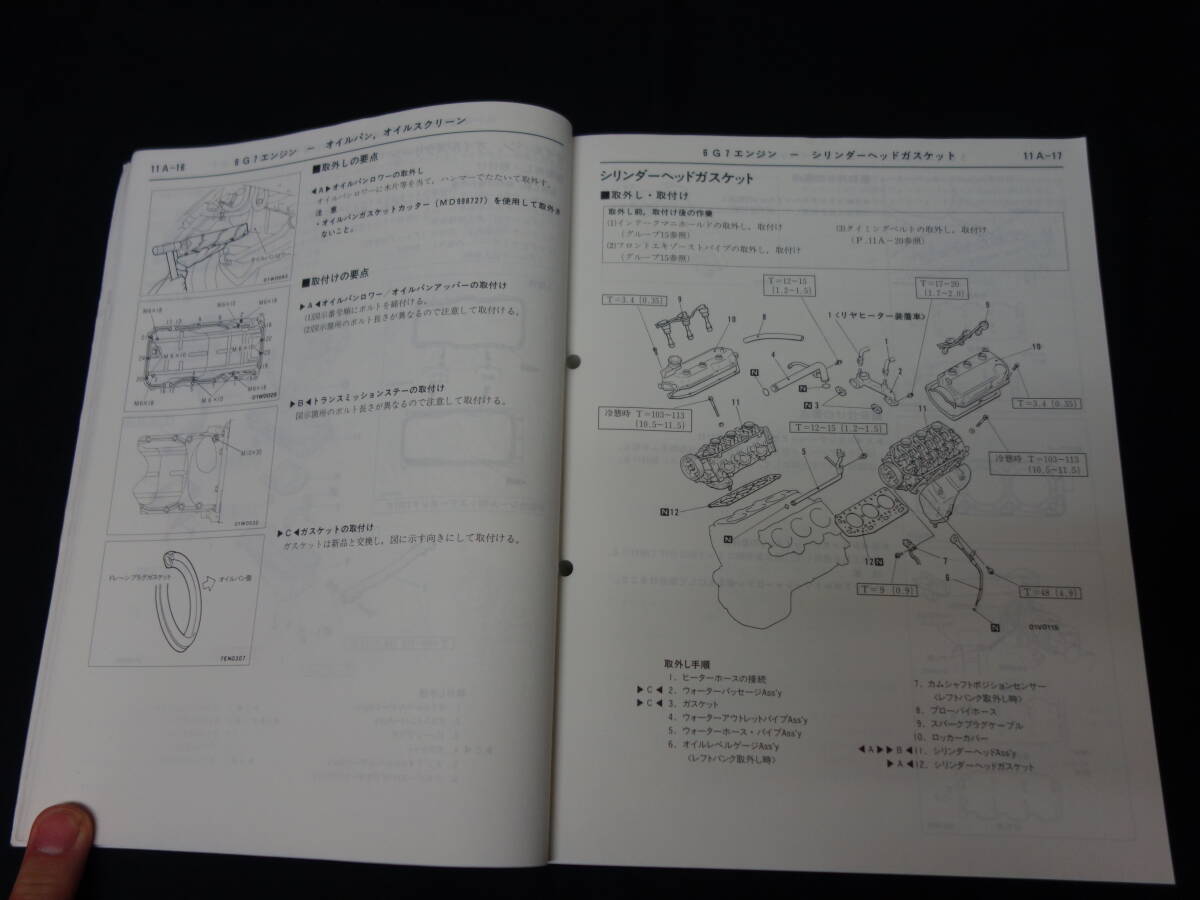 11A-16
6G7エンジン － オイルパン，オイルスクリーン
■取外しの要点
◀A▶オイルパンロワーの取外し
オイルパンロワーに木片等を当て，ハンマーでたたいて取外す。
注意
・オイルパンガスケットカッター（MD998727）を使用して取外さ
ないこと。
オイルパンロワー
■取付けの要点
▶A◀オイルパンロワー／オイルパンアッパーの取付け
(1)図示番号順にボルトを締付ける。
(2)図示箇所のボルト長さが異なるので注意して取付ける。
M6×10
M6×10
M6×10
M6×10
M6×18
M6×18
01W0028
▶B◀トランスミッションステーの取付け
図示箇所のボルト長さが異なるので注意して取付ける。
M10×30
▶C◀ガスケットの取付け
ガスケットは新品と交換し，図に示す向きにして取付ける。
ドレーンプラグガスケット
オイルパン側
7EN0307
6G7エンジン － シリンダーヘッドガスケット
11A-17
シリンダーヘッドガスケット
■取外し・取付け
取外し前，取付け後の作業
(1)インテークマニホールドの取外し，取付け
（グループ15参照）
(2)フロントエキゾーストパイプの取外し，取付け
（グループ15参照）
(3)タイミングベルトの取外し，取付け
（P.11A-20参照）
T=3.4 {0.35}
9
T=12~15
{1.2~1.5}
T=17~20
{1.7~2.0}
1〈リヤヒーター装着車〉
10
8
4
1
2
9
10
N
N
N 3
T=3.4 {0.35}
冷態時 T=103~113
{10.5~11.5}
11
T=12~15 {1.2~1.5}
11
5
冷態時 T=103~113
{10.5~11.5}
N12
N
12N
7
6
T=9 {0.9}
T=48 {4.9}
N
取外し手順
1. ヒーターホースの接続
▶C◀ 2. ウォーターパッセージAss'y
▶C◀ 3. ガスケット
4. ウォーターアウトレットパイプAss'y
5. ウォーターホース・パイプAss'y
6. オイルレベルゲージAss'y
〈レフトバンク取外し時〉
7. カムシャフトポジションセンサー
〈レフトバンク取外し時〉
8. ブローバイホース
9. スパークプラグケーブル
10. ロッカーカバー
◀A▶▶B◀11. シリンダーヘッドAss'y
▶A◀12. シリンダーヘッドガスケット